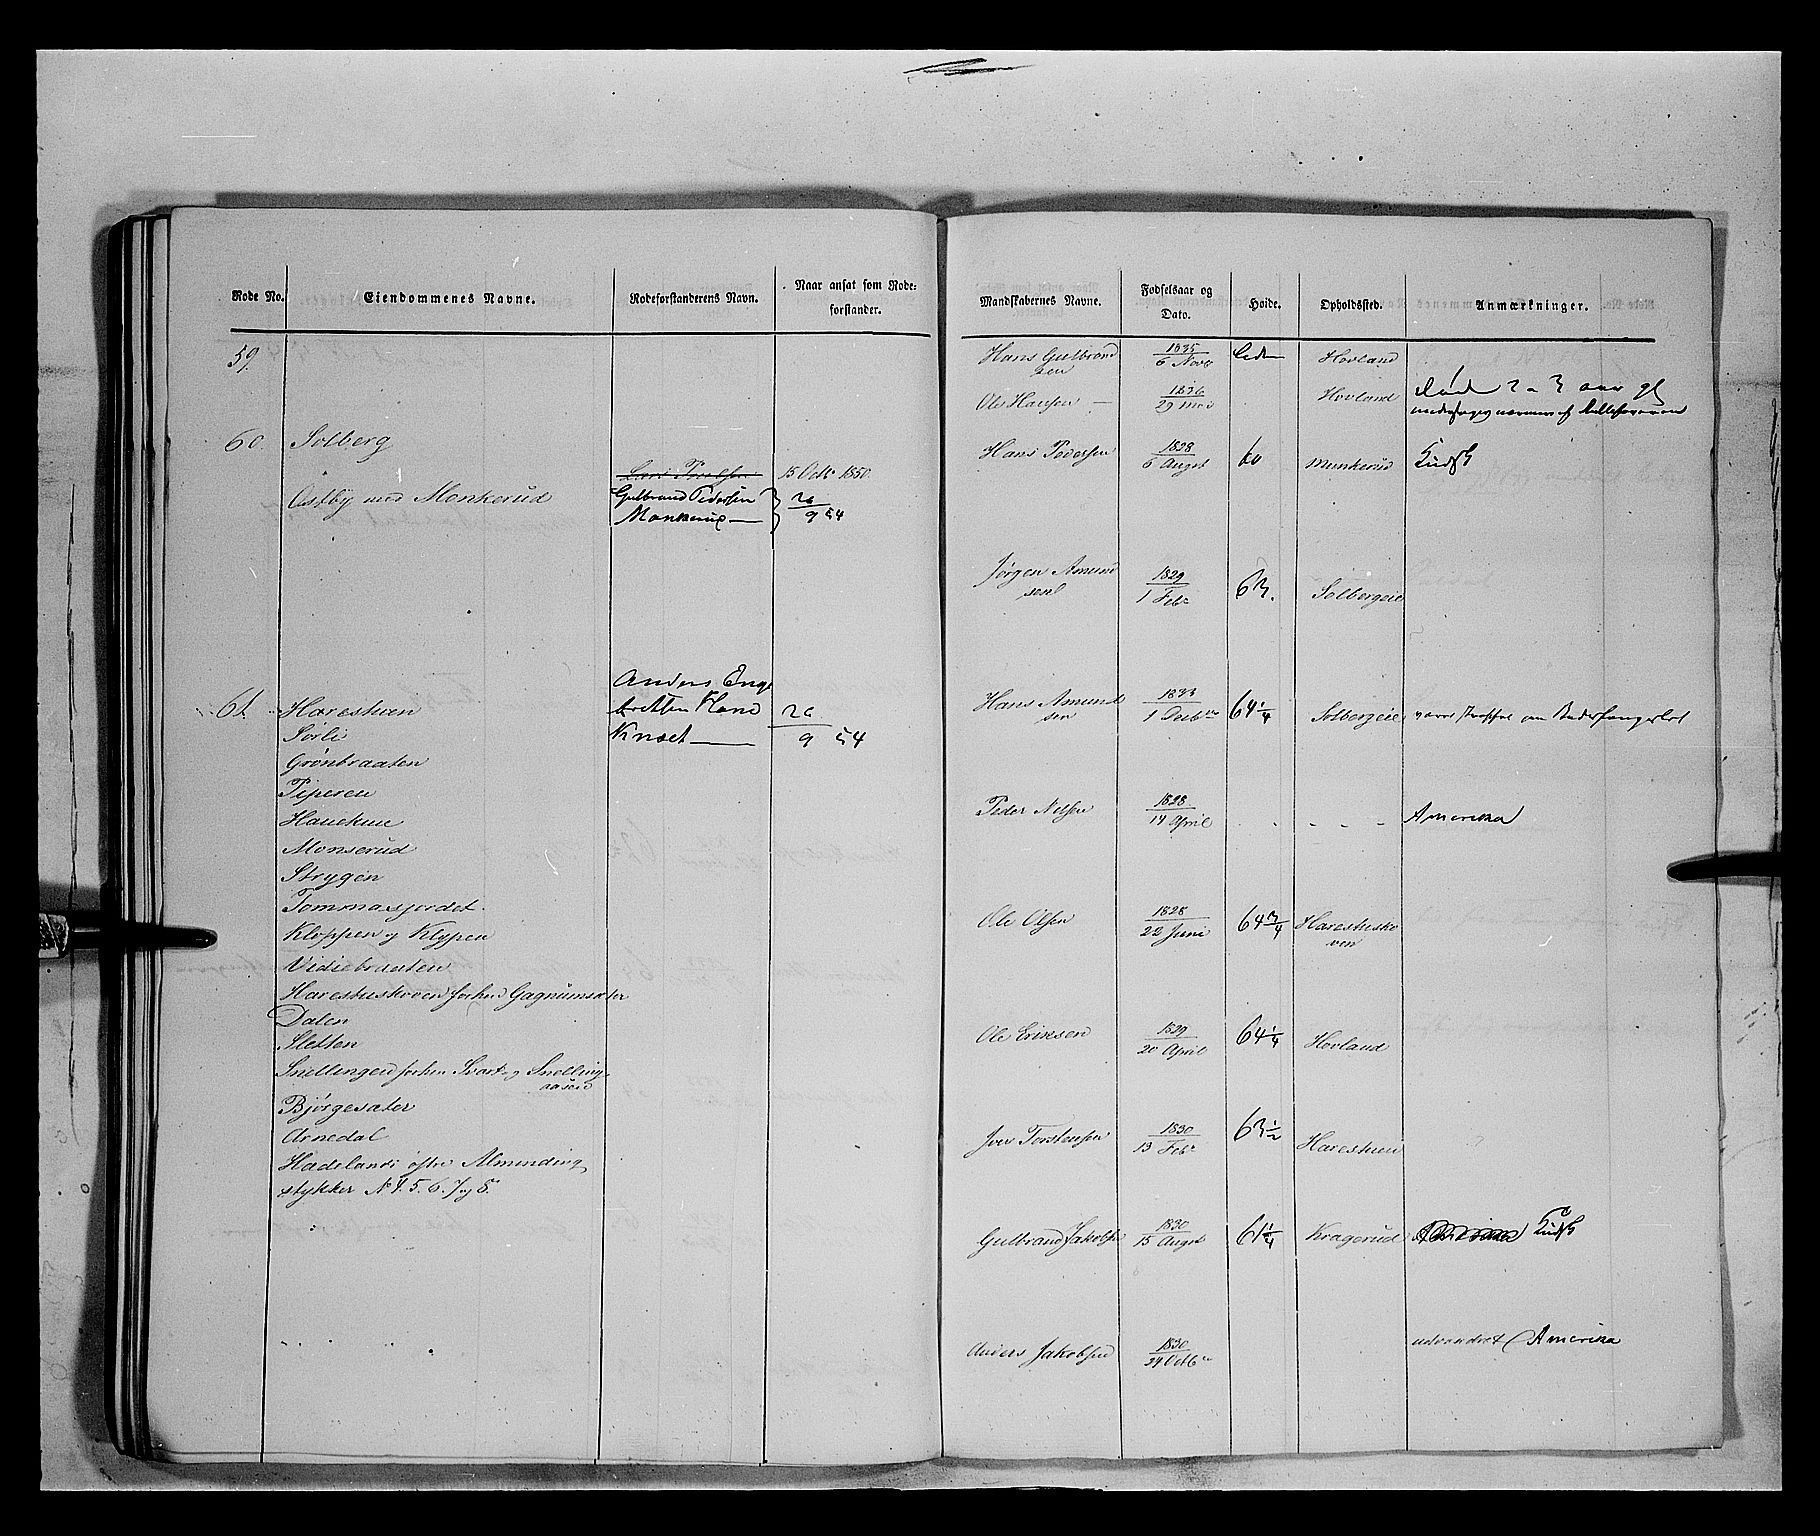 Rode No.
Eiendommenes Navne.
Rodeforstanderens Navn.
Naar ansat som Rode-
forstander.
59.
60.
Solberg
15 Octb 1850
Østby med Monkerud
Gulbrand Pedersen
Monkerud
26
9 54
61.
Harestuen
Anders Enge
26
9 54
Sørli
Knæet
Grønbraaten
Piperen
Hauekuu
Monserud
Strygen
Tommasjordet.
Kloppen og Klypen
Vidiebraaten
Harestuskoven forhen Gagnumsæter
Dalen
Sletten
Snellingen forhen Svart- og Snelling-
aasen
Bjørgesæter
Arnedal
Hadelands østre Alminding
stykker N 4. 5. 6. 7 og 8.
Mandskabernes Navne.
Fødselsaar og
Dato.
Høide.
Opholdssted.
Anmærkninger.
Hans Gulbrand
sen
1835
6 Novb
Hovland
Ole Hansen
1836
29 Mai
Hovland
2 a 3 aar
Hans Pedersen
1828
6 Augst
60
Munkerud
Jørgen Amund
sen
1829
1 Feb
63.
Solbergeie
Hans Amund
sen
1833
1
64 1/4
Solbergeie
Peder Nilsen
1828
14 April
Amerika
Ole Olsen
1828
22 Juni
64 3/4
Harestusko
ven
Ole Eriksen
1829
20 April
64 1/4
Hovland
Iver Torstensen
1830
13 Feb
63 1/2
Harestuen
Gulbrand Jakobsen
1830
15 Augst
61 1/4
Kragerud
Anders Jakobsen
1830
24 Octb
udvandret Amerika